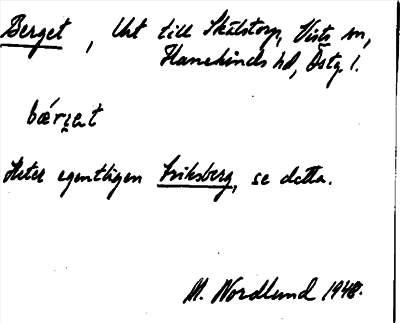 Berget, Uht till Skälstorp, Vists sn,
Hanekinds hd, Östg. l.
bærget
Heter egentligen Eriksberg, se detta.
M. Nordlund 1948.